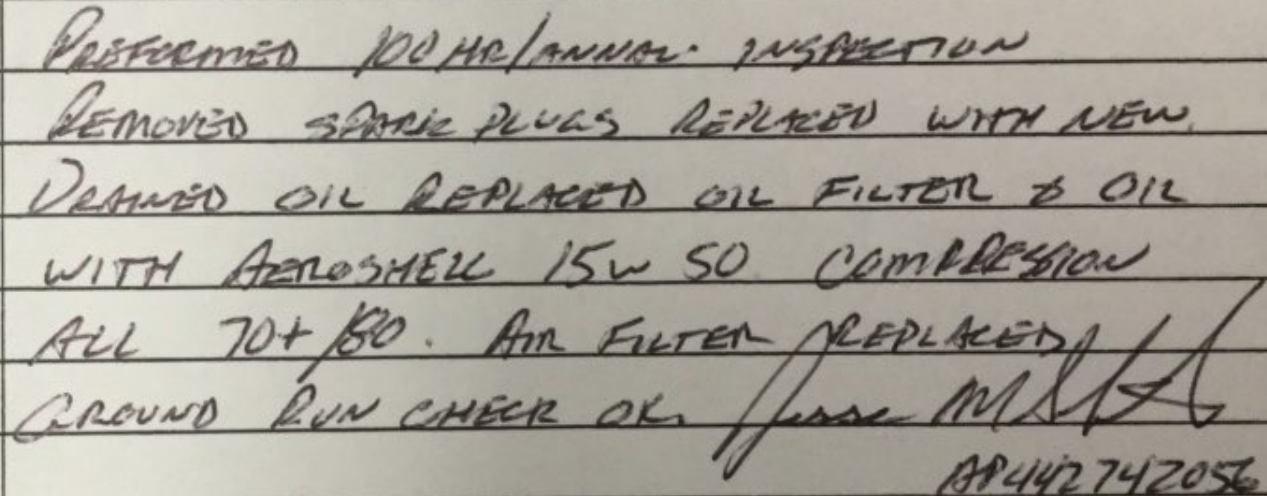 PREFORMED 100 HR/ANNAL. INSPECTION
REMOVED SPARK PLUGS REPLACED WITH NEW.
DRAINED OIL REPLACED OIL FILTER & OIL
WITH AEROSHELL 15W 50 COMPRESSION
ALL 70+/80. AIR FILTER REPLACED
GROUND RUN CHECK OK. Jesse M
AP442742056